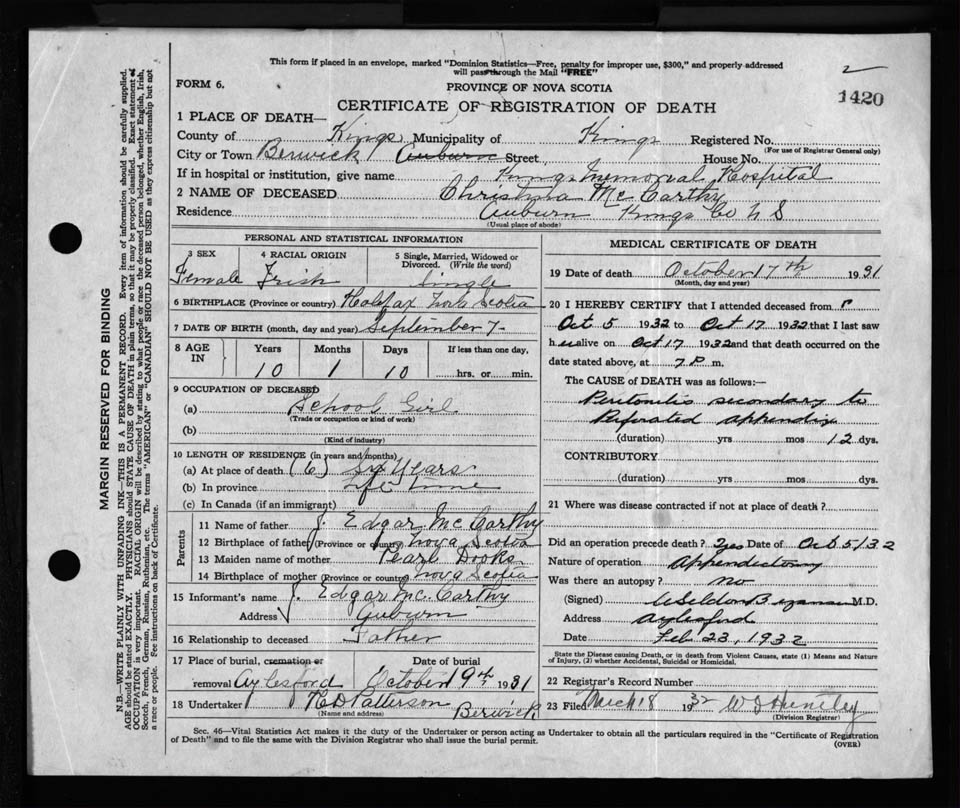 This form if placed in an envelope, marked "Dominion Statistics—Free, penalty for improper use, $300," and properly addressed
will pass through the Mail "FREE"
2
FORM 6.
PROVINCE OF NOVA SCOTIA
1420
CERTIFICATE OF REGISTRATION OF DEATH
1 PLACE OF DEATH—
County of Kings Municipality of Kings Registered No.
(For use of Registrar General only)
City or Town Berwick Auburn Street, House No.
If in hospital or institution, give name Kings Memorial Hospital
2 NAME OF DECEASED McCarthy
Residence Auburn Kings Co N S
(Usual place of abode)
PERSONAL AND STATISTICAL INFORMATION
3 SEX 4 RACIAL ORIGIN 5 Single, Married, Widowed or Divorced. (Write the word)
Female Irish Single
6 BIRTHPLACE (Province or country) Halifax Nova Scotia
7 DATE OF BIRTH (month, day and year) September 7-
8 AGE IN Years Months Days If less than one day,
10 1 10 hrs. or min.
9 OCCUPATION OF DECEASED
(a) School Girl
(Trade or occupation or kind of work)
(b)
(Kind of industry)
10 LENGTH OF RESIDENCE (in years and months)
(a) At place of death (6) Six Years
(b) In province Life time
(c) In Canada (if an immigrant)
Parents
11 Name of father J. Edgar McCarthy
12 Birthplace of father (Province or country) Nova Scotia
13 Maiden name of mother Pearl
14 Birthplace of mother (Province or country) Nova Scotia
15 Informant's name J. Edgar McCarthy
Address Auburn
16 Relationship to deceased Father
17 Place of burial, cremation or removal Aylesford Date of burial October 19th 1931
18 Undertaker H D Patterson Berwick
(Name and address)
MEDICAL CERTIFICATE OF DEATH
19 Date of death October 17th 1931
(Month, day and year)
20 I HEREBY CERTIFY that I attended deceased from
Oct 5 1932 to Oct 17 1932 that I last saw
h er alive on Oct 17 1932 and that death occurred on the
date stated above, at 7 P m.
The CAUSE of DEATH was as follows:—
Peritonitis secondary to
Perforated appendix
(duration) yrs mos 12 dys.
CONTRIBUTORY
(duration) yrs mos dys.
21 Where was disease contracted if not at place of death?
Did an operation precede death? Yes Date of Oct 5/32
Nature of operation Appendectomy
Was there an autopsy? no
(Signed) M.D.
Address Aylesford
Date Feb 23, 1932
State the Disease causing Death, or in death from Violent Causes, state (1) Means and Nature
of Injury, (2) whether Accidental, Suicidal or Homicidal.
22 Registrar's Record Number
23 Filed March 18 1932 W S Huntley
(Division Registrar)
Sec. 46—Vital Statistics Act makes it the duty of the Undertaker or person acting as Undertaker to obtain all the particulars required in the "Certificate of Registration
of Death" and to file the same with the Division Registrar who shall issue the burial permit.
(OVER)
MARGIN RESERVED FOR BINDING
N.B.—WRITE PLAINLY WITH UNFADING INK—THIS IS A PERMANENT RECORD. Every item of information should be carefully supplied.
AGE should be stated EXACTLY. PHYSICIANS should STATE CAUSE OF DEATH in plain terms, so that it may be properly classified. Exact statement of
OCCUPATION is very important. RACIAL ORIGIN will be described by stating to what people or race the deceased person belonged, whether English, Irish,
Scotch, French, German, Russian, Ruthenian, etc. The terms "AMERICAN" or "CANADIAN" SHOULD NOT BE USED as they express citizenship but not
a race or people. See instructions on back of Certificate.